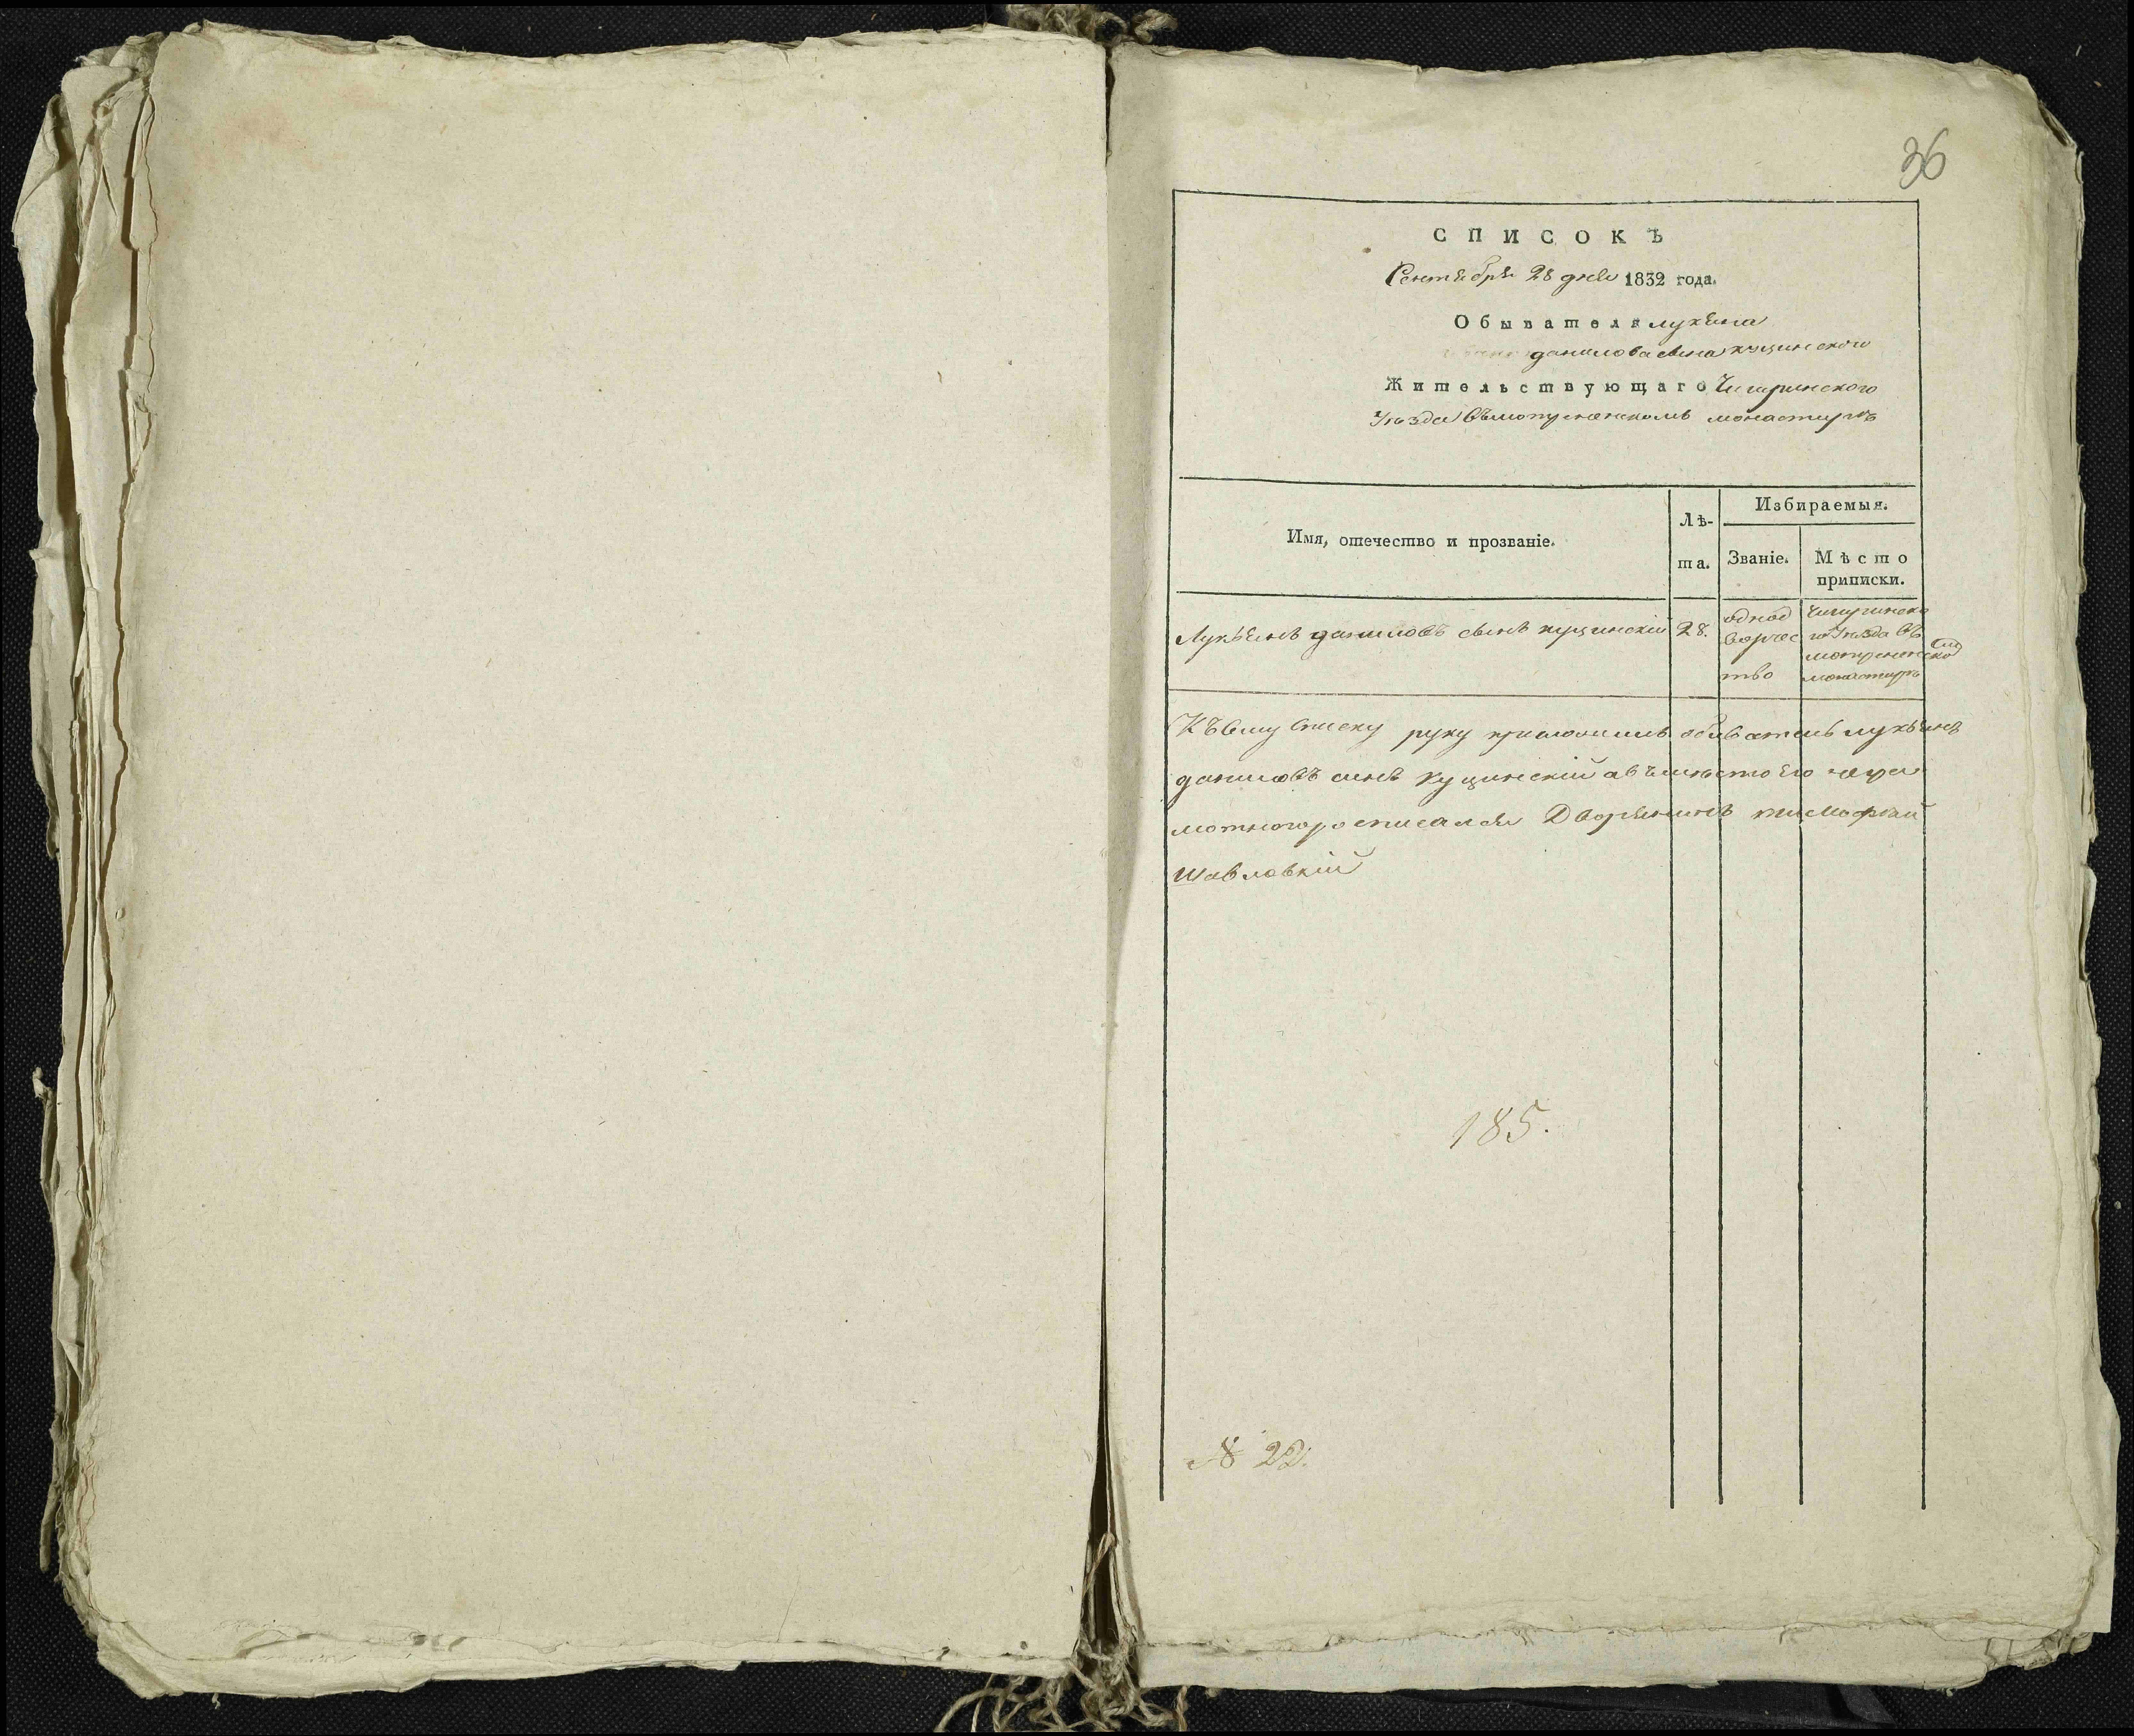 36
СПИСОКЪ
Сентебря 28 дня 1832 года.
Обывателя лукяна
данилова сына куцинского
Жительствующаго Чигиринского
Уезда въ мотренскомъ монастырѣ
Имя, отечество и прозваніе.
Лѣ-
та.
Избираемыя.
Званіе.
Мѣсто
приписки.
Лукьянъ даниловъ сынъ куцинскій
28.
однод
ворчес
тво
Чигиринско
го Уезда въ
мотренско
монастырѣ
Къ сему списку руку приложилъ обыватель лукьянъ
даниловъ синъ куцинский а вместо его негра
мотного росписался Дворянинъ тимофтий
шавловкій
185.
№ 22.